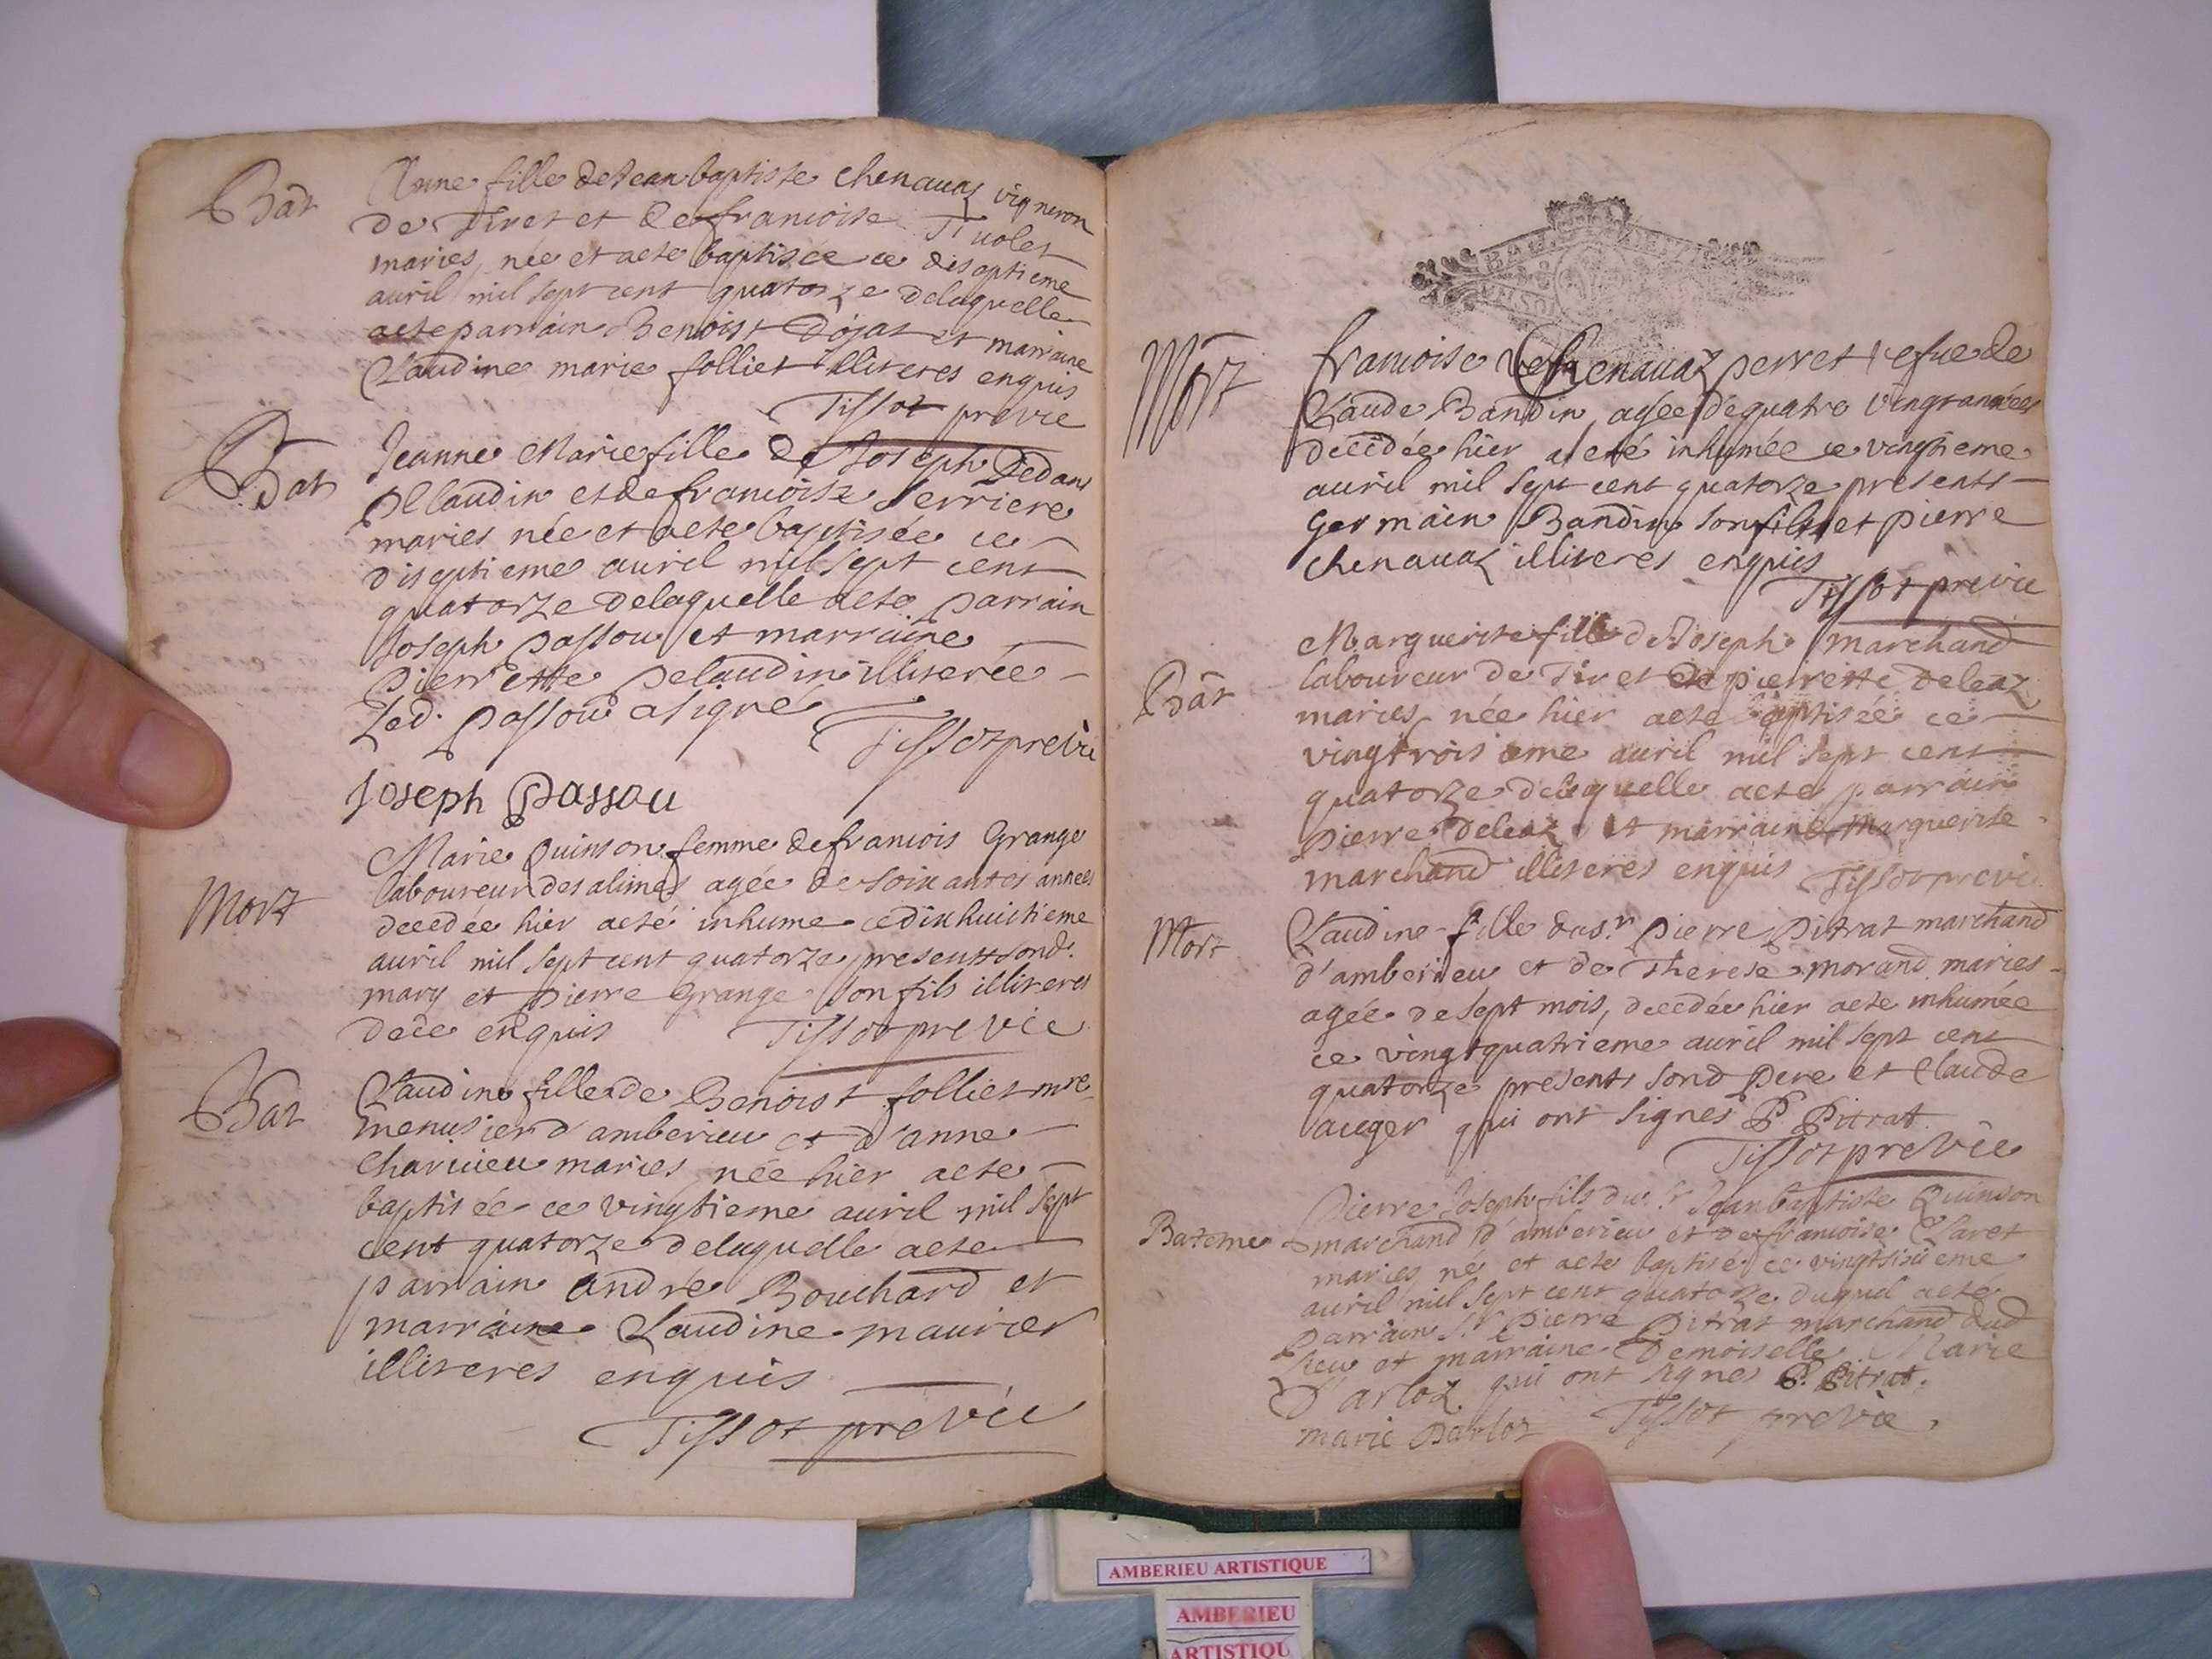 Bat
Anne fille de Jean baptiste chenauaz vigneron
de Tiret et de francoise Tiuolet
maries, née et aeté baptisée ce diseptieme
auril mil sept cent quatorze delaquelle
aeste parrain Benoist Dojat et marraine
Claudine marie folliet illiteres enquis
Tissot previc
Bat
Jeanne Marie fille de Joseph
et de francoise Serriere
maries née et aeté baptisée ce
diseptieme auril mil sept cent
quatorze delaquelle aeté parrain
Joseph passou et marraine
pierrette pelaudin illiterée
Led. passou a signé
Tissot previc
Joseph Passou
Mort
Marie Quinson femme de francois Grange
laboureur des alimes agée de soixantes années
decedée hier aeté inhume ce dixhuictieme
auril mil sept cent quatorze presents sond.
mary et pierre Grange son fils illiteres
dece enquis Tissot previc
Bat
Claudine fille de Benoist folliet mre
menusier d'amberieu et d'anne
Charuieu maries née hier aeté
baptisée ce vingtieme auril mil sept
cent quatorze delaquelle aeté
parrain andré Bouchard et
marraine Claudine maurier
illiteres enquis
Tissot previc
Mort
francoise Chenauaz perret vefue de
Claude Bandin agée de quatre vingt années
decedée hier a eté inhumée ce vingtieme
auril mil sept cent quatorze presents
Germain Bandin son fils et pierre
chenauaz illiteres enquis
Tissot previc
Bat
Marguerite fille de Joseph marchand
laboureur de Tiret et de pierrette deleaz
maries née hier aeté baptisée ce
vingtroisieme auril mil sept cent
quatorze delaquelle aeté parrain
pierre deleaz et marraine Marguerite
marchand illiteres enquis Tissot previc
Mort
Claudine fille du sr. pierre pitrat marchand
d'amberieu et de Therese morand maries
agée de sept mois, decedée hier aeté inhumée
ce vingtquatrieme auril mil sept cent
quatorze presents sond pere et Claude
auger qui ont signés P Pitrat
Tissot previc
Bateme
Pierre Joseph fils du sr. Jean baptiste Quinson
marchand d'amberieu et de francoise Claret
maries né et aeté baptisé ce vingtsixieme
auril mil sept cent quatorze duquel aeté
parrain sr. Pierre Pitrat marchand dud
lieu et marraine Demoiselle Marie
Darloz qui ont signes P. Pitrat.
marie Darloz Tissot previc.
AMBERIEU ARTISTIQUE
AMBERIEU
ARTISTIQU